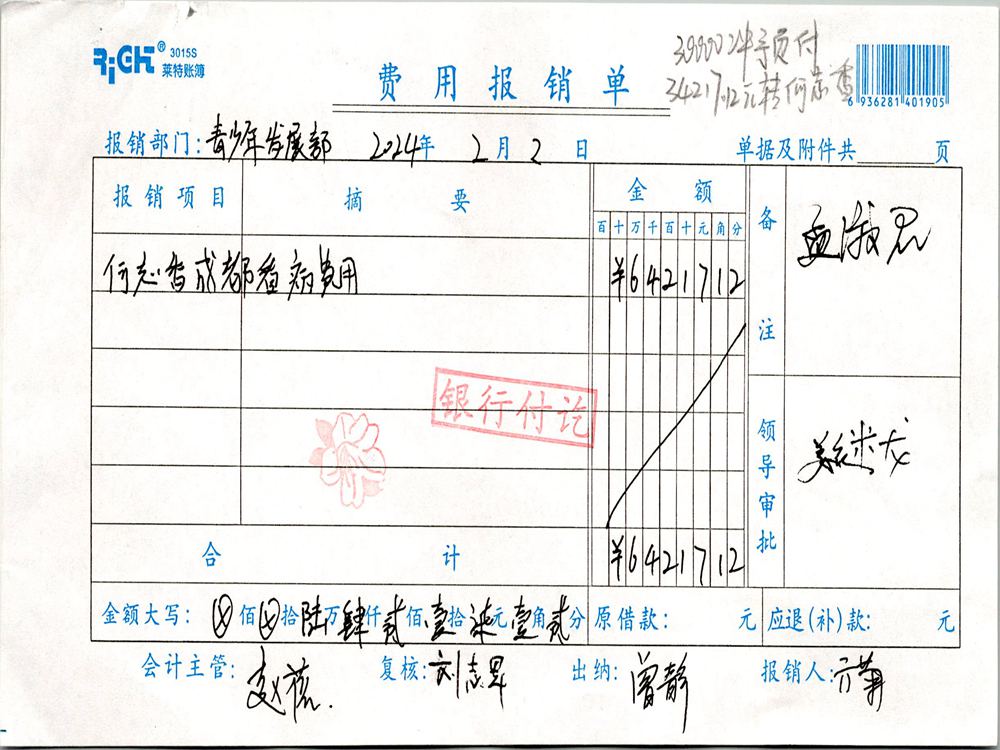 RiCH® 3015S
莱特账簿
30000元24年预付
34217.12元转何志香
6 936281 401905
费用报销单
报销部门：青少年发展部 2024年 2月 2日 单据及附件共 页
报销项目 摘要 金额 备注
百十万千百十元角分
何志香成都看病费用 ¥6421712
孟淑君
银行付讫
领导审批
合计 ¥6421712
金额大写：⊗佰⊗拾陆万肆仟贰佰壹拾柒元壹角贰分 原借款： 元 应退(补)款： 元
会计主管：赵蓓. 复核：刘志昇 出纳：曾静 报销人：